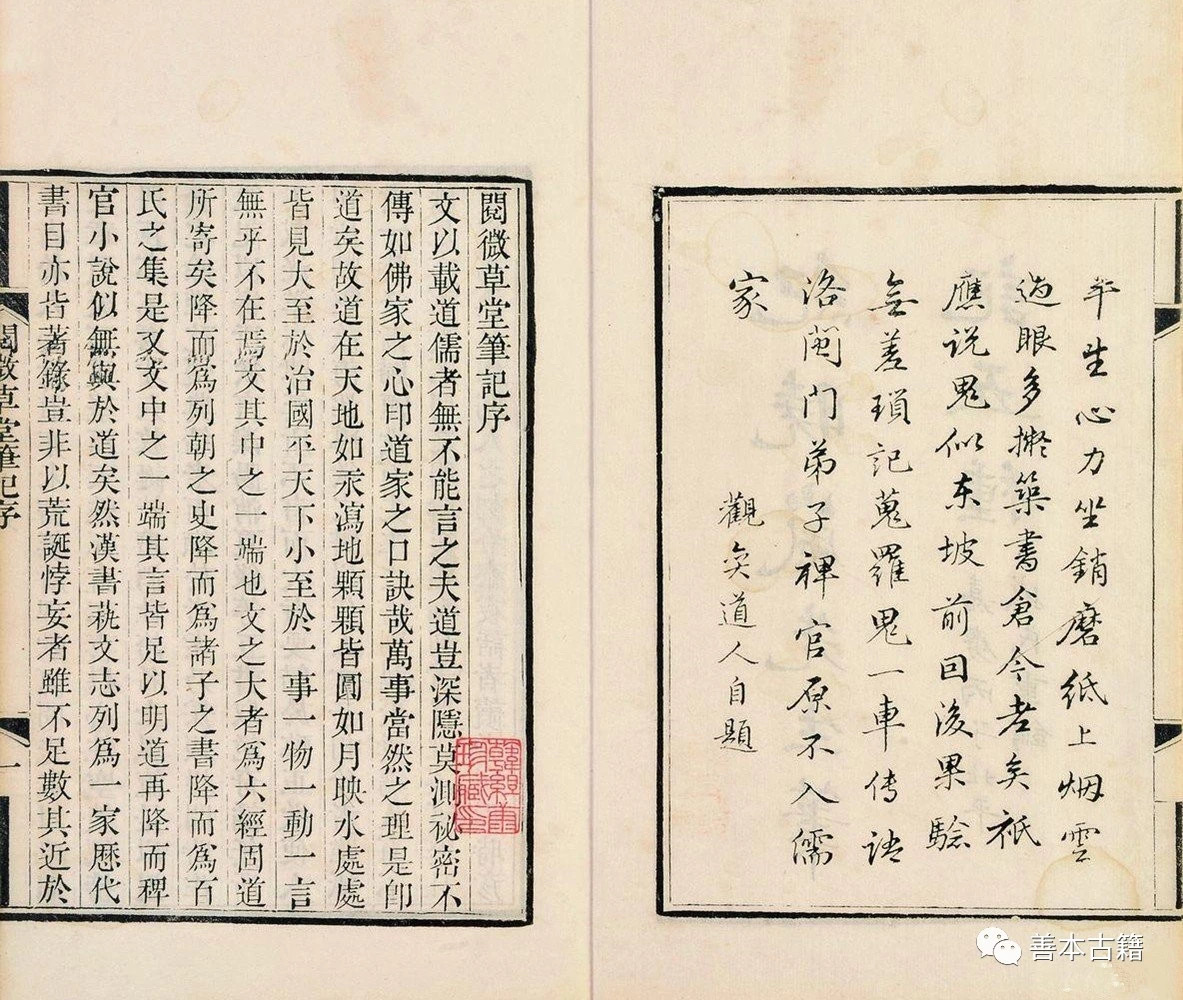 平生心力坐銷磨紙上烟雲
過眼多擬築書倉今老矣祇
應说鬼似东坡前因後果驗
無差瑣記蒐羅鬼一車传語
洛閩门弟子稗官原不入儒
家
觀奕道人自題
閱微草堂筆記序
文以載道儒者無不能言之夫道豈深隱莫測祕密不
傳如佛家之心印道家之口訣哉萬事當然之理是卽
道矣故道在天地如汞瀉地顆顆皆圓如月映水處處
皆見大至於治國平天下小至於一事一物一動一言
無乎不在焉文其中之一端也文之大者爲六經固道
所寄矣降而爲列朝之史降而爲諸子之書降而爲百
氏之集是又文中之一端其言皆足以明道再降而稗
官小說似無與於道矣然漢書蓺文志列爲一家歷代
書目亦皆著錄豈非以荒誕悖妄者雖不足數其近於
閱微草堂筆記序
一
善本古籍